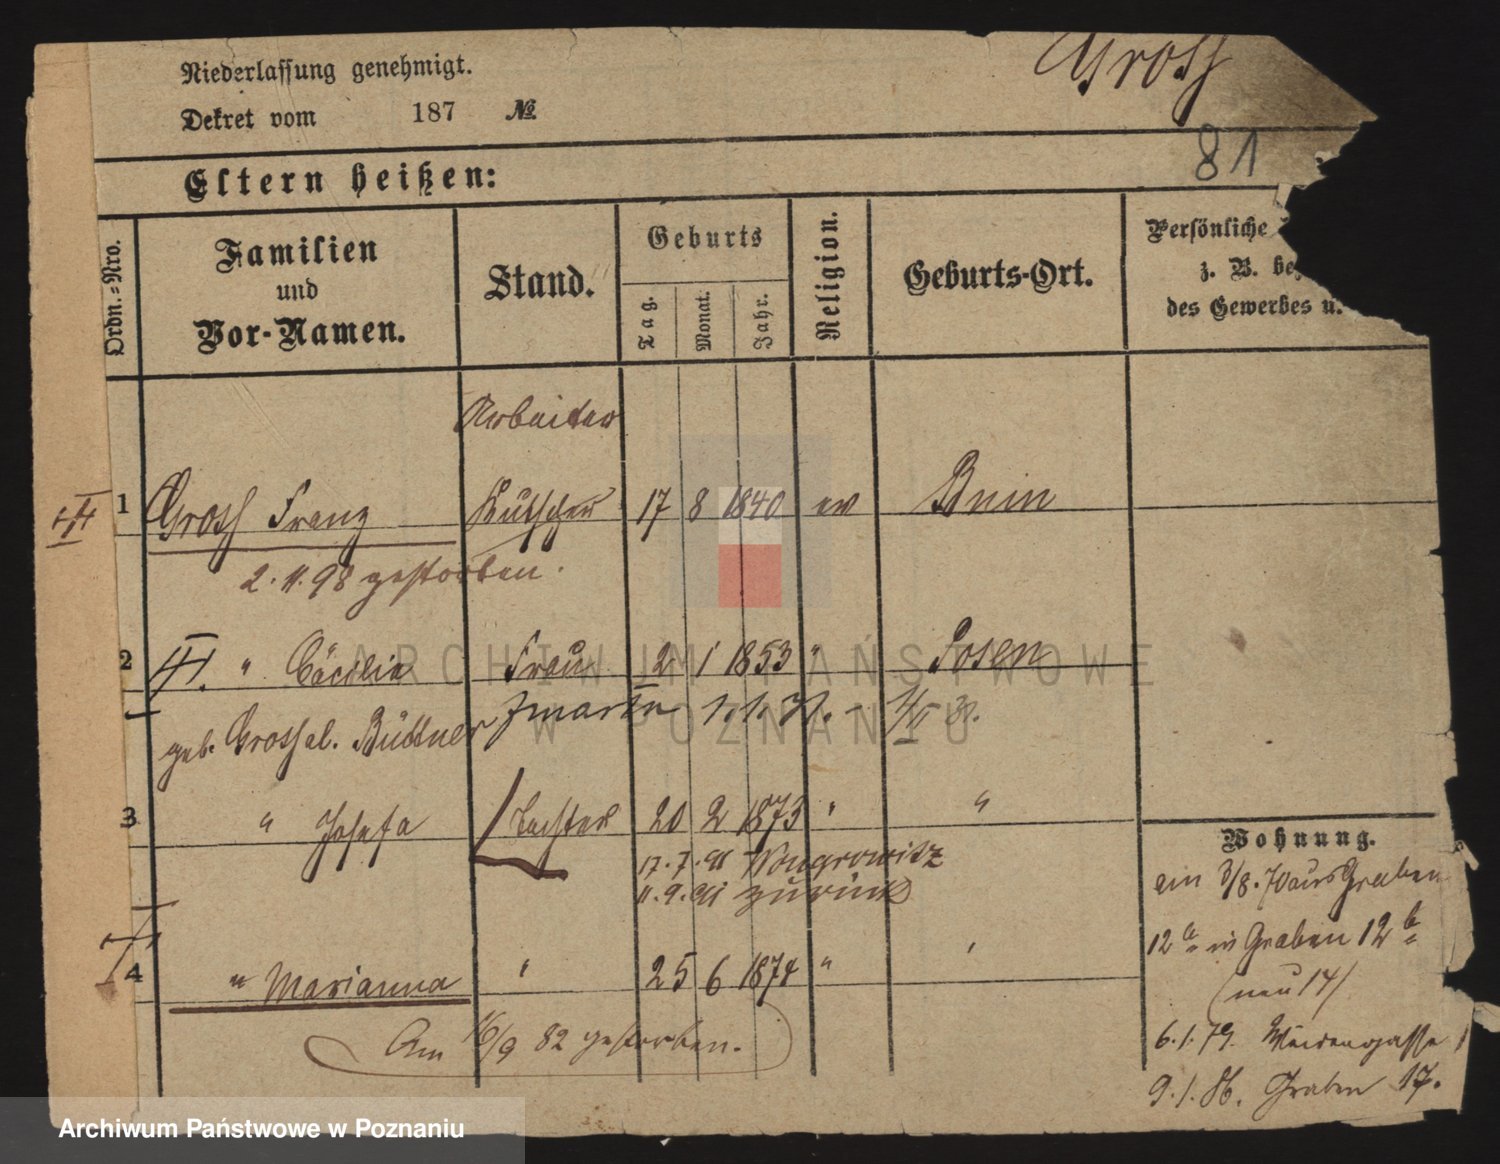 Niederlassung genehmigt.
Dekret vom 187 №
Gross
81
Eltern heißen:
Ordn.-Nro.
Familien
und
Vor-Namen.
Stand.
Geburts
Tag.
Monat.
Jahr.
Religion.
Geburts-Ort.
Persönliche
z. B. be
des Gewerbes u.
Arbeiter
1 Gross Franz Kutscher 17 8 1840 ev Bnin
2. 11. 98 gestorben.
2 " Cäcilie Frau 2 1 1853 " Posen
geb. Grossel. Büttner 1. 1.
3 " Josefa Tochter 20 2 1873 " "
17. 7. 91 Wongrowitz
11. 9. 91 zurück
4 " Marianna " 25 6 1874 " "
Am 16/9 82 gestorben.
Wohnung.
am 3/8. 70 aus Graben
12 a in Graben 12 b
(neu 14)
6. 1. 79. Weidengasse 1
9. 1. 86. Graben 17.
ARCHIWUM PAŃSTWOWE
W POZNANIU
Archiwum Państwowe w Poznaniu